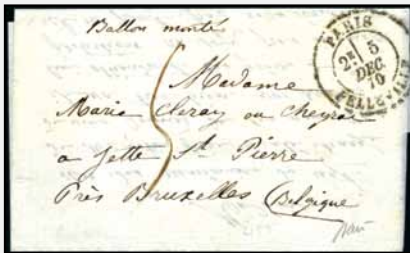 Ballon monté
PARIS
2E 5
DEC.
70
BELLEVILLE
Madame
Maria Cleray ou Cheyra
a Jette St Pierre
Près Bruxelles (Belgique
5